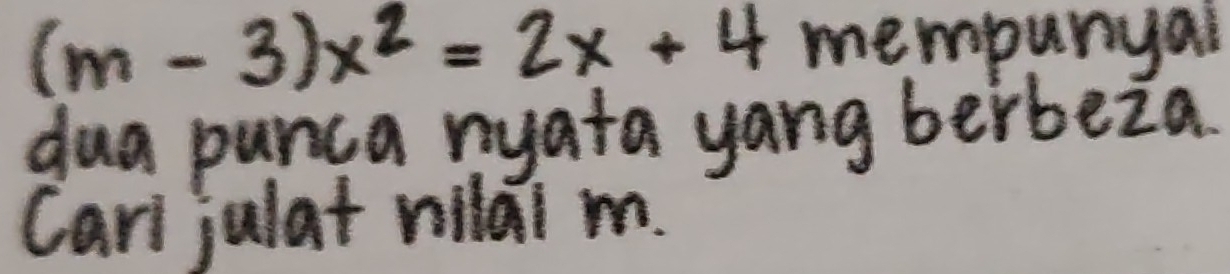 (m - 3)x² = 2x + 4 mempunyai
dua punca nyata yang berbeza.
Cari julat nilai m.